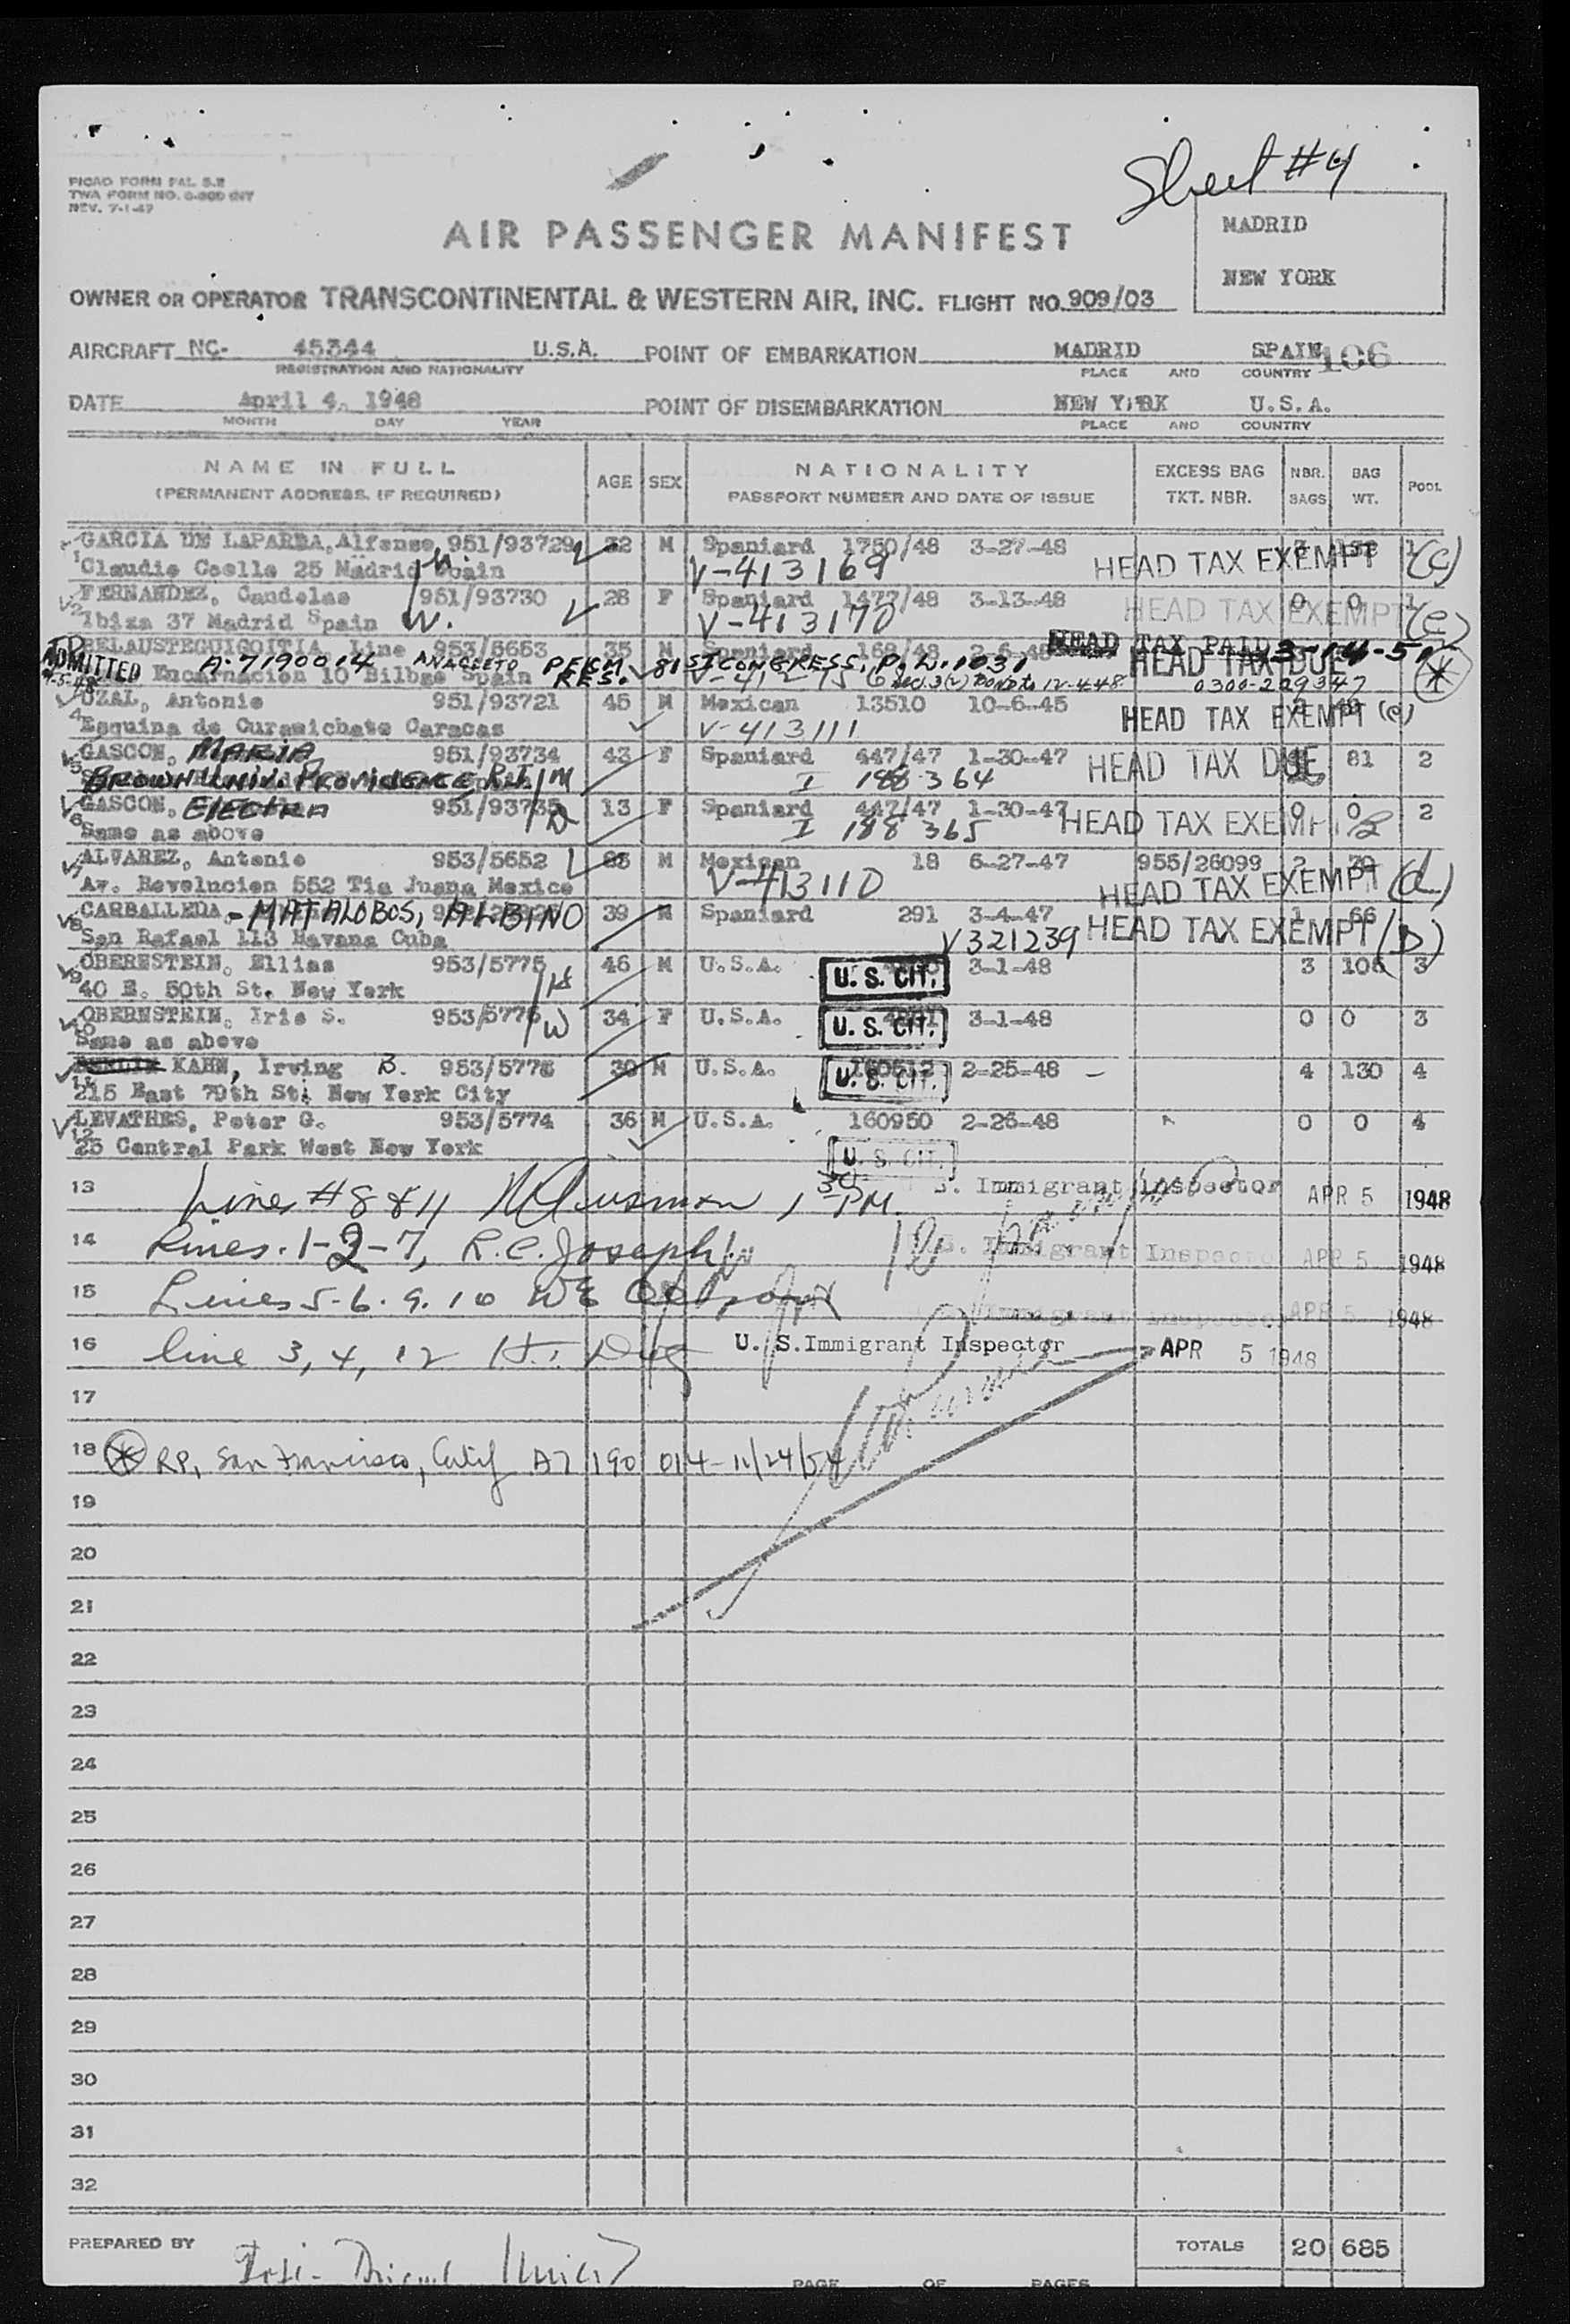 Sheet #4
PICAO FORM PAL 5.2
TWA FORM NO.
REV. 7-1-47
AIR PASSENGER MANIFEST
MADRID
NEW YORK
OWNER OR OPERATOR TRANSCONTINENTAL & WESTERN AIR, INC. FLIGHT NO. 909/03
AIRCRAFT NC- 45344 U.S.A. POINT OF EMBARKATION MADRID SPAIN 106
REGISTRATION AND NATIONALITY PLACE AND COUNTRY
DATE April 4, 1948 POINT OF DISEMBARKATION NEW YORK U.S.A.
MONTH DAY YEAR PLACE AND COUNTRY
NAME IN FULL AGE SEX NATIONALITY EXCESS BAG NBR. BAG POOL
(PERMANENT ADDRESS, IF REQUIRED) PASSPORT NUMBER AND DATE OF ISSUE TKT. NBR. BAGS WT.
GARCIA DE LAPARRA, Alfonso 951/93729 32 M Spaniard 1750/48 3-27-48 1
1 Claudio Coello 25 Madrid Spain V-413169 HEAD TAX EXEMPT (C)
FERNANDEZ, Candelas 951/93730 28 F Spaniard 1477/48 3-13-48 0 0 1
2 Ibiza 37 Madrid Spain W. V-413170 HEAD TAX EXEMPT (e)
BELAUSTEGUIGOITIA, Line 953/5653 35 M Spaniard 168/48 2-6-48 HEAD TAX PAID 3-14-51
ADMITTED A-7190014 ANACLETO PERM. RES. 81ST CONGRESS, P.L. 1031 HEAD TAX DUE
Encarnacion 10 Bilbao Spain 0300-229347 *
UZAL, Antonio 951/93721 45 M Mexican 13510 10-6-45
4 Esquina de Curamichate Caracas V-413111 HEAD TAX EXEMPT (e)
GASCON, MARIA 951/93734 43 F Spaniard 447/47 1-30-47 HEAD TAX DUE 81 2
5 BROWN UNIV. PROVIDENCE R.I. M I 188364
GASCON, ELECTRA 951/93735 13 F Spaniard 447/47 1-30-47 0 0 2
6 Same as above D I 188365 HEAD TAX EXEMPT
ALVAREZ, Antonio 953/5652 M Mexican 18 6-27-47 955/26099 2
7 Av. Revolucion 552 Tia Juana Mexico V-413110 HEAD TAX EXEMPT (d)
CARBALLEDA - MATALOBOS, ALBINO 39 M Spaniard 291 3-4-47 1 66
8 San Rafael 113 Havana Cuba V321239 HEAD TAX EXEMPT (D)
OBERESTEIN, Ellias 953/5775 46 M U.S.A. 3-1-48 3 106 3
9 40 E. 50th St. New York H U. S. CIT.
OBERNSTEIN, Iris S. 953/5776 34 F U.S.A. 3-1-48 0 0 3
10 Same as above W U. S. CIT.
KAHN, Irving B. 953/5778 39 M U.S.A. 160512 2-25-48 4 130 4
11 215 East 79th St. New York City U. S. CIT.
LEVATHES, Peter G. 953/5774 36 M U.S.A. 160950 2-26-48 0 0 4
12 25 Central Park West New York U. S. CIT.
13 Line #8 & 11 1 30 PM. U. S. Immigrant Inspector APR 5 1948
14 Lines. 1-2-7, R.C. Joseph U. S. Immigrant Inspector APR 5 1948
15 Lines 5-6. 9. 10 Immigrant Inspector APR 5 1948
16 line 3, 4, 12 U. S. Immigrant Inspector APR 5 1948
17
18 * RP, San Francisco, Calif A7 190 014 - 11/24/54
19
20
21
22
23
24
25
26
27
28
29
30
31
32
PREPARED BY TOTALS 20 685
PAGE OF PAGES